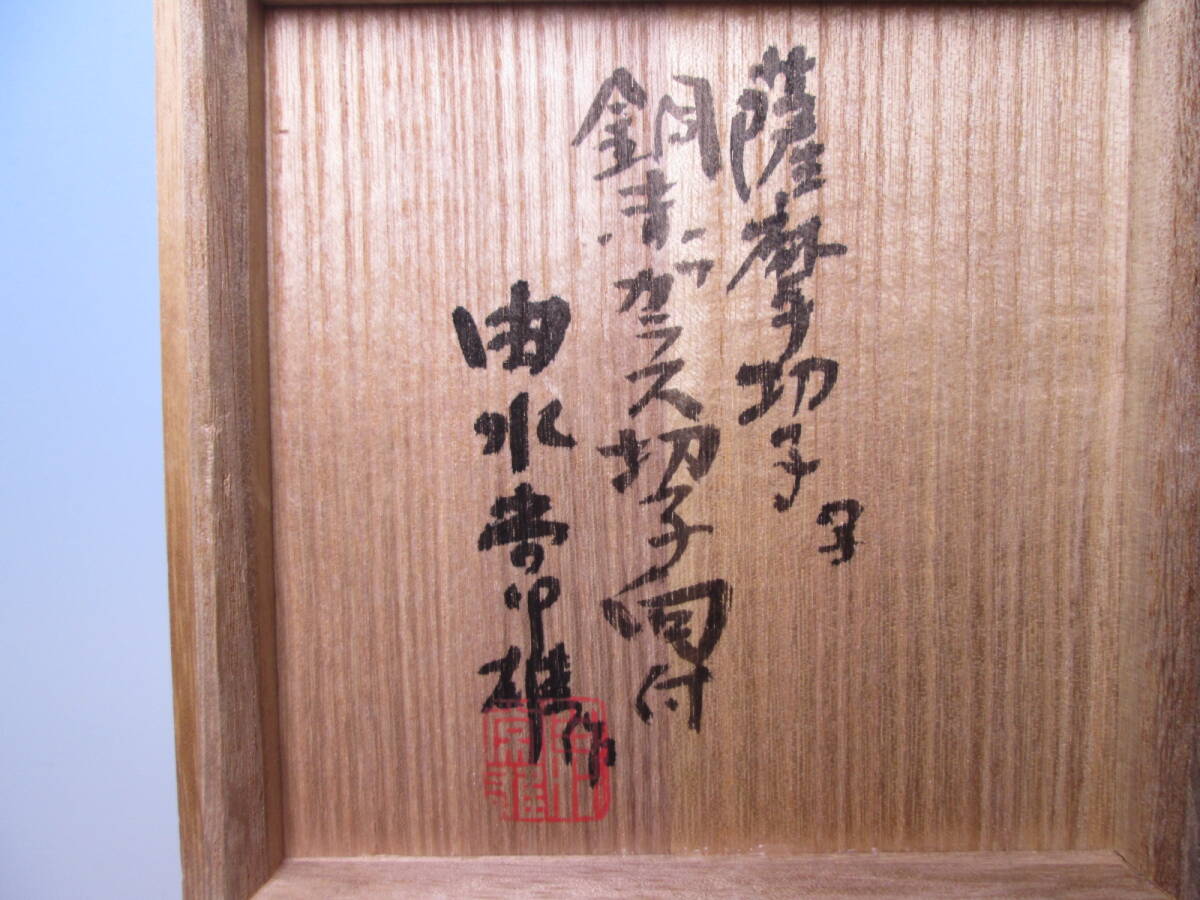 薩摩切子写
銅赤ガラス切子向付
由水常雄作